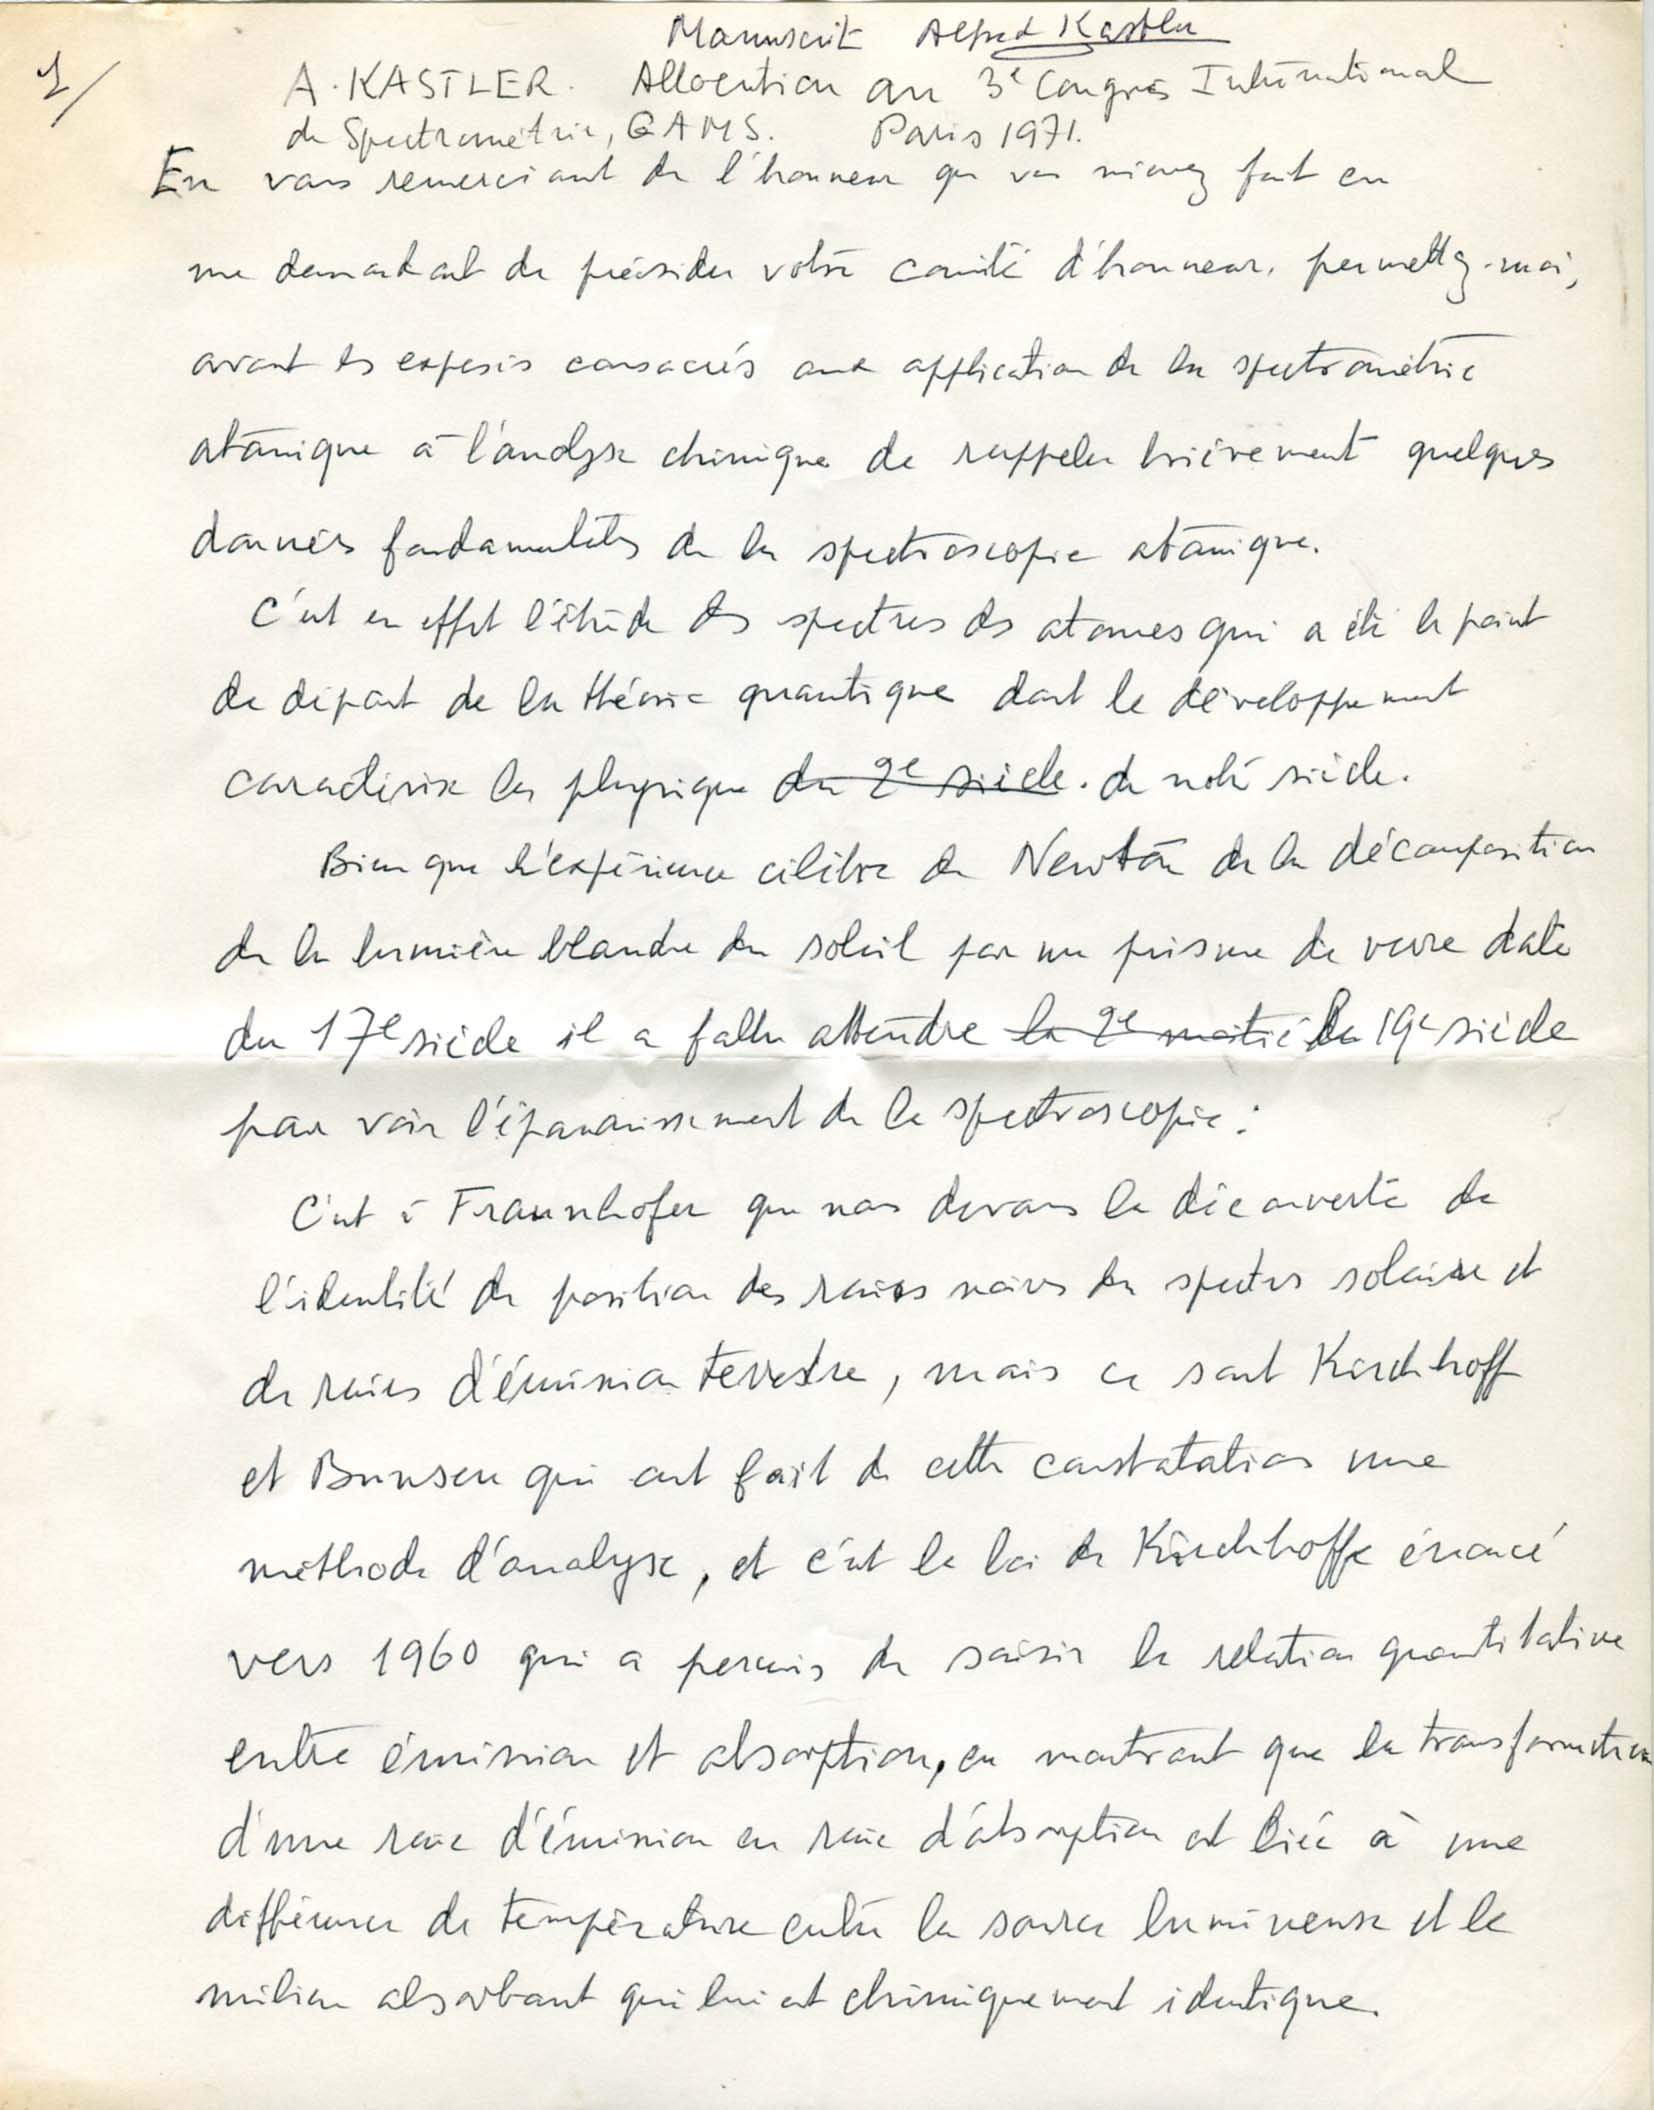 Manuscrit Alfred Kastler
1/
A. KASTLER. Allocution au 3e Congrès International
de Spectrométrie, GAMS. Paris 1971.
En vous remerciant de l'honneur que vous m'avez fait en
me demandant de présider votre comité d'honneur, permettez-moi,
avant les exposés consacrés aux application de la spectrométrie
atomique à l'analyse chimique de rappeler brièvement quelques
données fondamentales de la spectroscopie atomique.
C'est en effet l'étude des spectres des atomes qui a été le point
de départ de la théorie quantique dont le développement
caractérise la physique du 2e siècle. de notre siècle.
Bien que l'expérience célèbre de Newton de la décomposition
de la lumière blanche du soleil par un prisme de verre date
du 17e siècle il a fallu attendre la 2e moitié du le 19e siècle
pour voir l'épanouissement de la spectroscopie :
C'est à Fraunhofer que nous devons la découverte de
l'identité de position des raies noires du spectre solaire et
de raies d'émission terrestre, mais ce sont Kirchhoff
et Bunsen qui ont fait de cette constatation une
méthode d'analyse, et c'est la loi de Kirchhoff énoncé
vers 1960 qui a permis de saisir la relation quantitative
entre émission et absorption, en montrant que la transformation
d'une raie d'émission en raie d'absorption est liée à une
différence de température entre la source lumineuse et le
milieu absorbant qui lui est chimiquement identique.